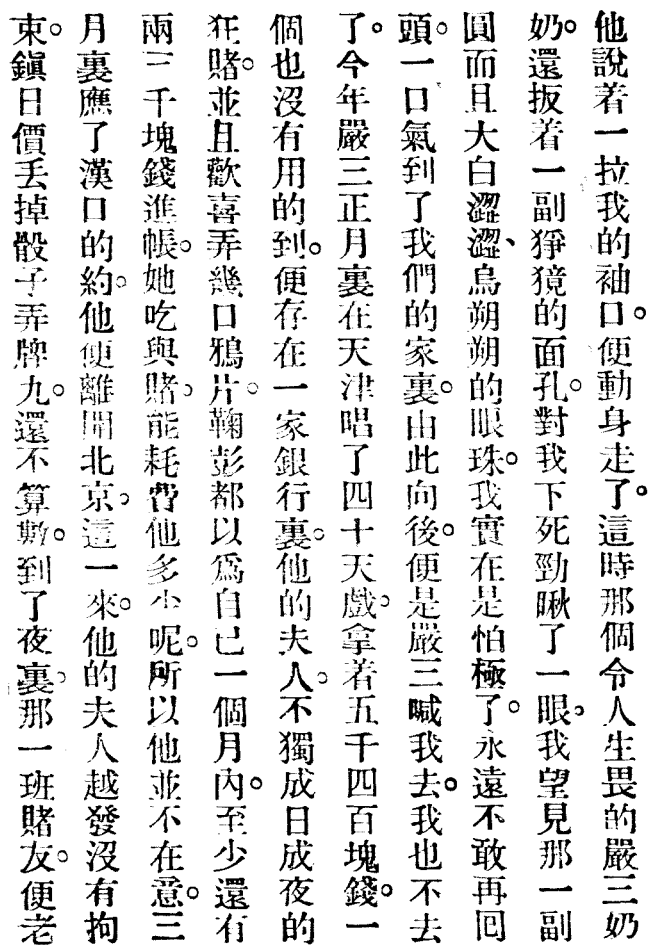 他說着一拉我的袖口。便動身走了。這時那個令人生畏的嚴三奶
奶。還扳着一副猙獍的面孔。對我下死勁瞅了一眼。我望見那一副
圓而且大白澀澀、烏朔朔的眼珠。我實在是怕極了。永遠不敢再回
頭。一口氣到了我們的家裏。由此向後。便是嚴三喊我去。我也不去
了。今年嚴三正月裏在天津唱了四十天戲。拿着五千四百塊錢。一
個也沒有用的到。便存在一家銀行裏。他的夫人。不獨成日成夜的
狂賭。並且歡喜弄幾口鴉片。鞠彭都以爲自已一個月內。至少還有
兩三千塊錢進帳。她吃與賭。能耗費他多少呢。所以他並不在意。三
月裏應了漢口的約。他便離開北京。這一來。他的夫人越發沒有拘
束。鎭日價丟掉骰子弄牌九。還不算數。到了夜裏。那一班賭友。便老